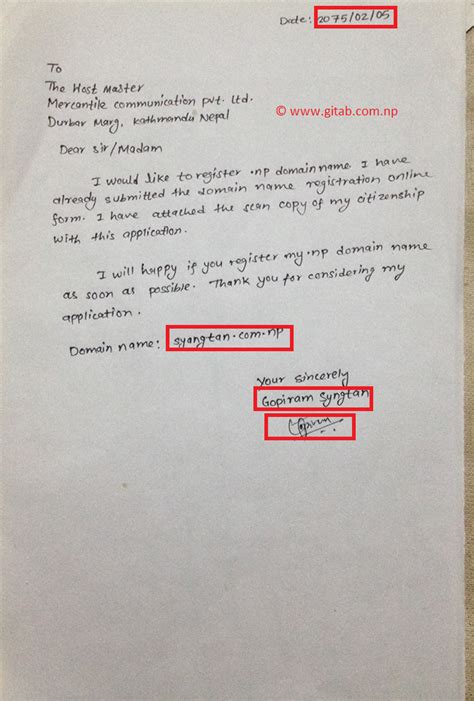 Date: 2075/02/05
To
The Host Master
Mercantile communication pvt. Ltd.
Durbar Marg, Kathmandu Nepal
© www.gitab.com.np
Dear Sir/Madam
I would like to register .np domain name. I have
already submitted the domain name registration online
form. I have attached the scan copy of my citizenship
with this application.
I will happy if you register my .np domain name
as soon as possible. Thank you for considering my
application.
Domain name: syangtan.com.np
Your sincerely
Gopiram Syngtan